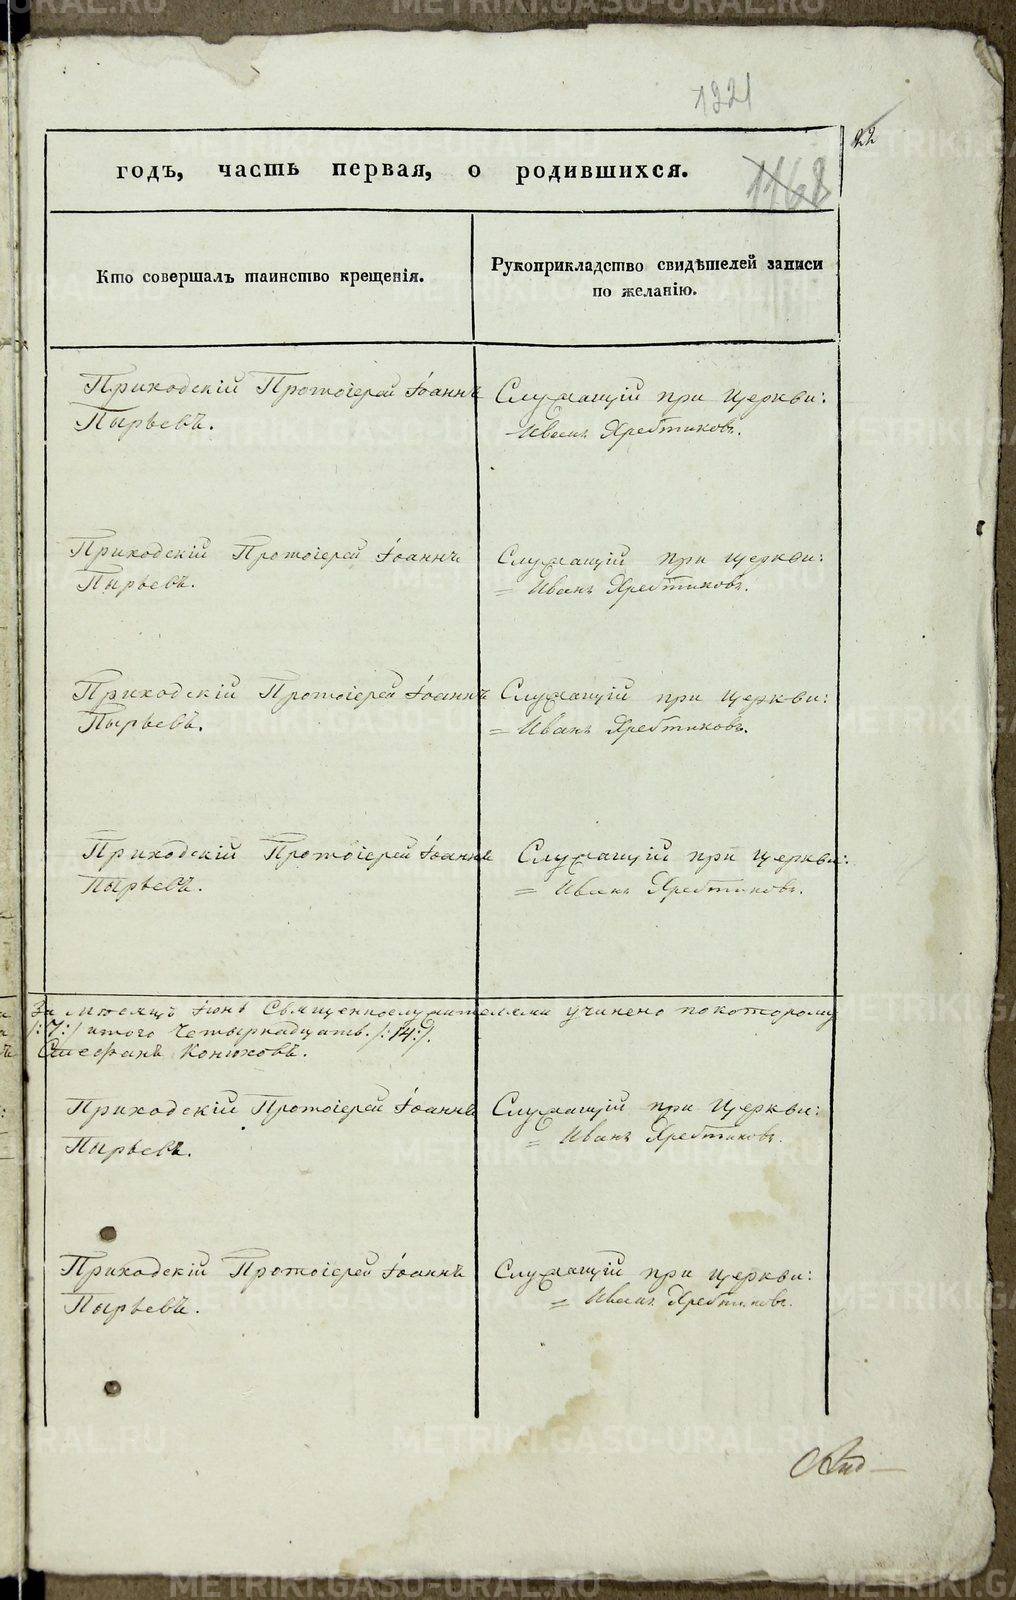 METRIKI.GASO-URAL.RU
1221
22
годъ, часть первая, о родившихся.
1168
Кто совершалъ таинство крещенія.
Рукоприкладство свидѣтелей записи
по желанію.
Приходскій Протоіерей Іоаннъ
Пырьевъ.
Служащій при Церкви:
Иванъ Хребтиковъ.
Приходскій Протоіерей Іоаннъ
Пырьевъ.
Служащій при Церкви:
= Иванъ Хребтиковъ.
Приходскій Протоіерей Іоаннъ
Пырьевъ.
Служащій при Церкви:
= Иванъ Хребтиковъ.
Приходскій Протоіерей Іоаннъ
Пырьевъ.
Служащій при Церкви:
= Иванъ Хребтиковъ.
За мѣсяцъ Іюнь Священнослужителями учинено по которому
/:7:/ итого Четырнадцать. /:14:/.
Стефанъ Конюховъ.
Приходскій Протоіерей Іоаннъ
Пырьевъ.
Служащій при Церкви:
= Иванъ Хребтиковъ.
Приходскій Протоіерей Іоаннъ
Пырьевъ.
Служащій при Церкви:
= Иванъ Хребтиковъ.
METRIKI.GASO-URAL.RU